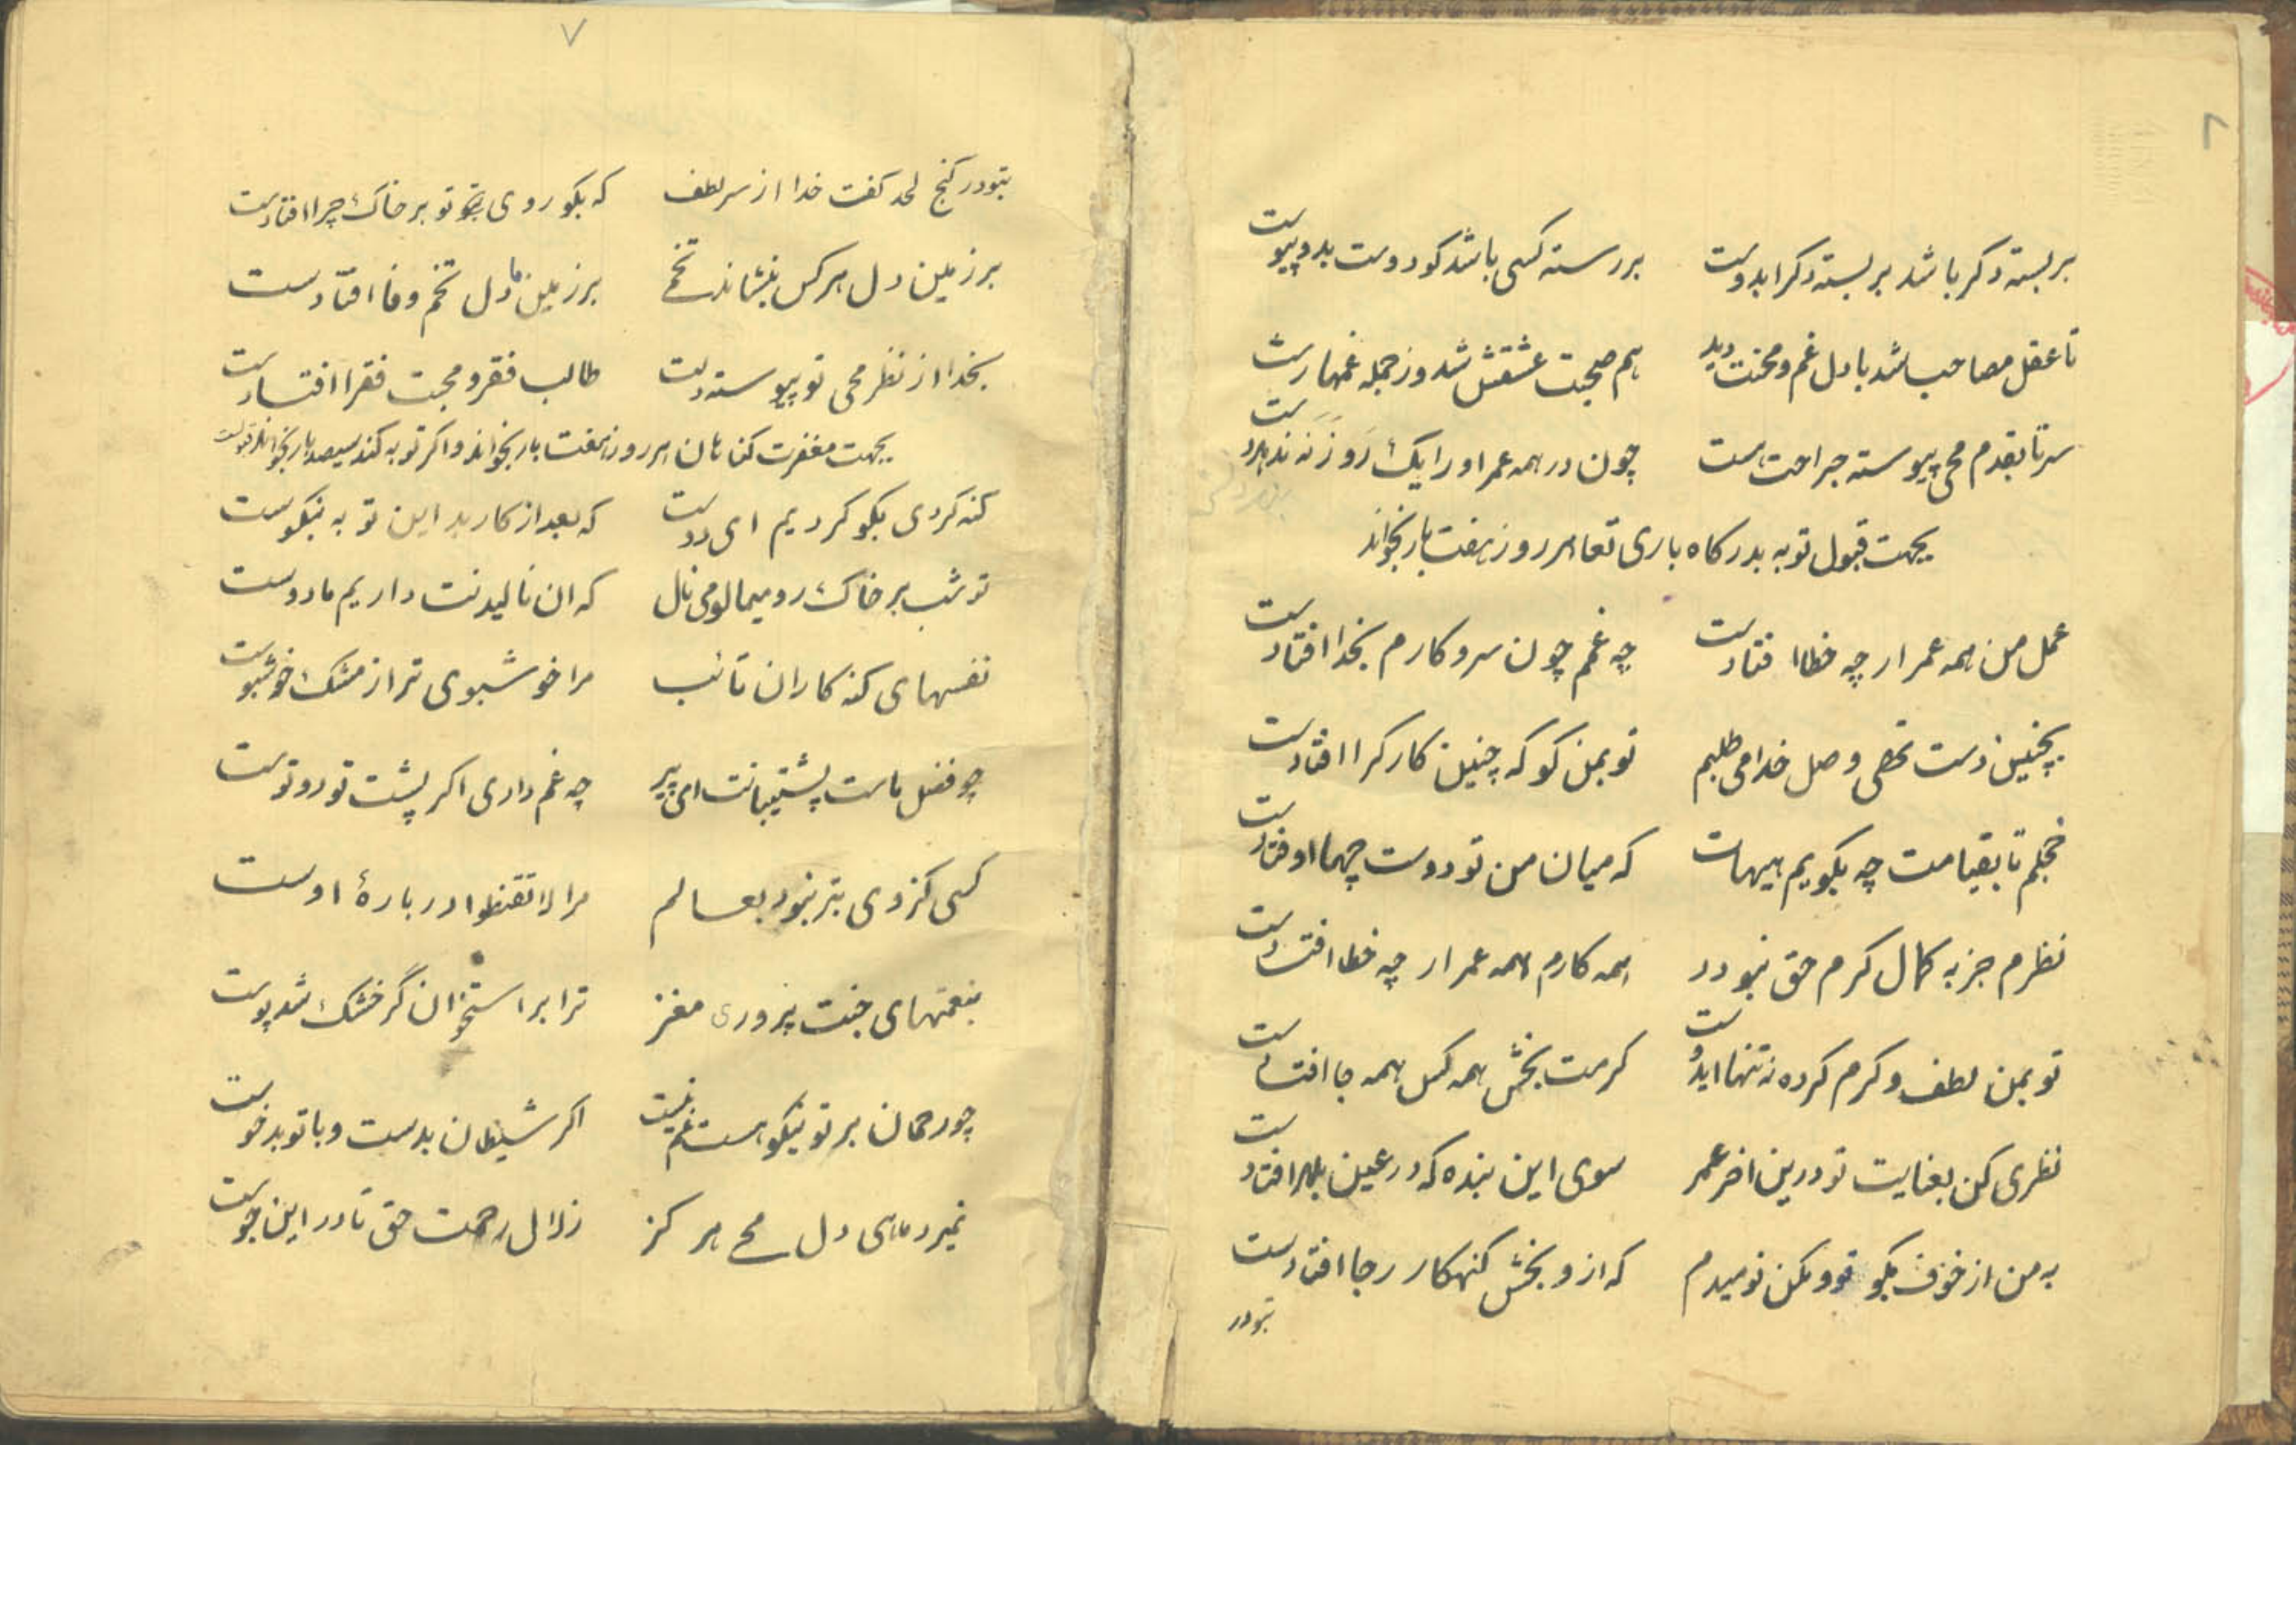 بر بسته دکر باشد بر بسته دکرا بدوست بررسته کسی باشد کو دوست بدو پیوست
تا عقل مصاحب شد با دل غم و محنت دید هم صحبت عشقش شد وز جمله غمها رست
سر تا بقدم محی پیوسته جراحت است چون در همه عمر او را یک روز نه ند مرد ست
بجهت قبول توبه بدرکاه باری تعا هر روز هفت بار بخواند
عمل من همه عمر ار چه خطا افتادست چه غم چون سر و کارم بخدا افتادست
بچنین دست تهی وصل خدا می طلبم تو بمن کو که چنین کار کرا افتادست
خجلم تا بقیامت چه بکویم هیهات که میان من تو دوست چهما اوفتادست
نظرم جز به کمال کرم حق نبود همه کارم همه عمر ار چه خطا افتادست
تو بمن لطف و کرم کرده نه تنها ای دوست کرمت بخش همه کس همه جا افتادست
نظری کن بعنایت تو درین اخر عمر سوی این بنده که در عین بلا افتادست
به من از خوف بکو تو و مکن نومیدم که ازو بخش کنهکار رجا افتادست
بتو در
۷
بتو در کنج لحد کفت خدا از سر لطف که بکو روی تو بر خاک چرا افتادست
بر زمین دل هر کس بنشاند تخمے بر زمین دل ما تخم وفا افتادست
بخدا از نظر محی تو پیوسته دلت طالب فقر و محبت فقرا افتادست
بجهت مغفرت کناهان هر روز هفت بار بخواند و اکر توبه کند سیصد بار بخواند
کنه کردی بکو کردیم ای دوست که بعد از کار بد این توبه نیکوست
تو شب بر خاک رو میمال و می نال که ان نالیدنت داریم ما دوست
نفسهای کنه کاران تائب مرا خوشبوی تر از مشک خوشبوست
چو فضل ماست پشتیبانت ای پیر چه غم داری اکر پشت تو دوتوست
کسی کز وی بتر نبود بعالم مرا لا تقنطوا در بارهٔ اوست
بنعمتهای جنت پروری مغز ترا بر استخوان گر خشک شد پوست
چو رحمان بر تو نیکو هست غم نیست اکر شیطان بدست و با تو بدخوست
نمیرد ماهی دل محے هر کز زلال رحمت حق تا در این جوست